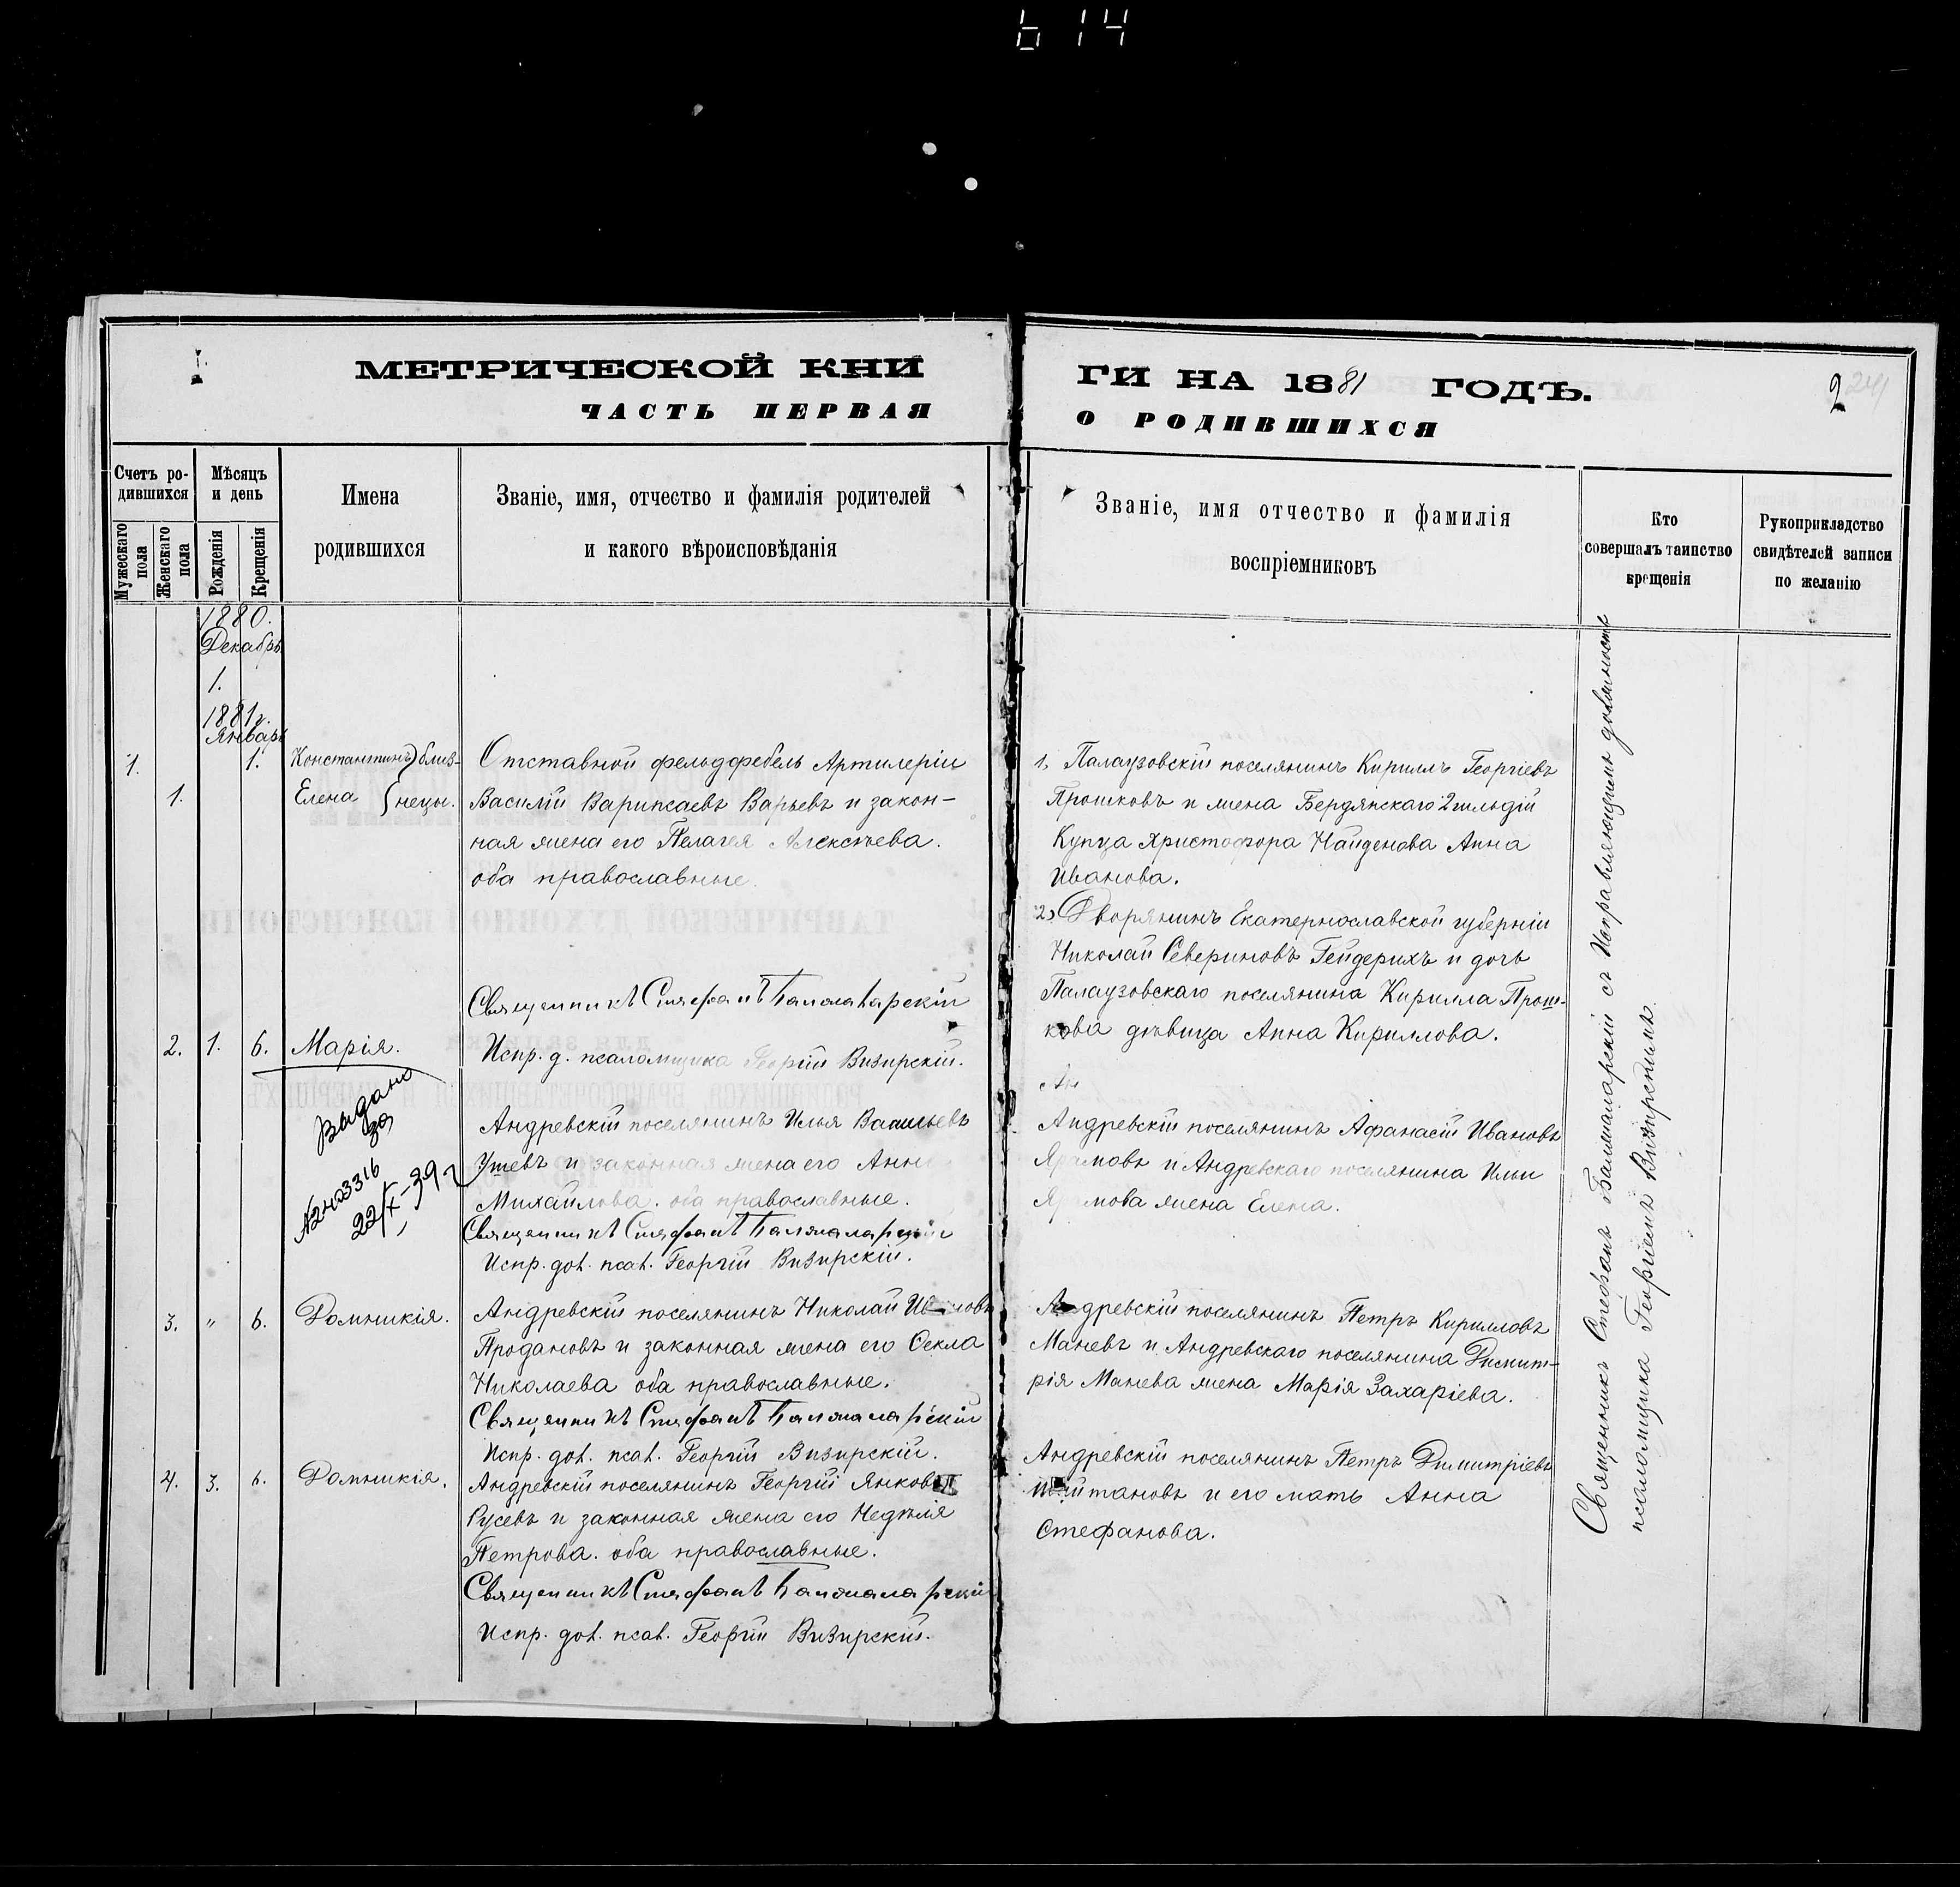 614
МЕТРИЧЕСКОЙ КНИ
ЧАСТЬ ПЕРВАЯ
Счетъ ро-
дившихся
Мѣсяцъ
и день
Имена
родившихся
Званіе, имя, отчество и фамилія родителей
и какого вѣроисповѣданія
Мужескаго
пола
Женскаго
пола
Рожденія
Крещенія
1880.
Декабрь
1.
1881г.
Январь
1. 1. Константинъ } близ-
1. Елена } нецы.
Отставной фельдфебель Артилеріи
Василій Варьевъ и закон-
ная жена его Пелагея Алексѣева.
оба православные.
Священникъ Стефанъ Балжаларскій
2. 1. 6. Марія.
Испр. д. псаломщика Георгій Визирскій.
Выдано
за
22/X-39г
Андревскій поселянинъ Илья Васильевъ
и законная жена его Анна
Михайлова. оба православные.
Священникъ Стефанъ Балжаларскій
Испр. дол. псал. Георгій Визирскій.
3. " 6. Домникія.
Андревскій поселянинъ Николай Ивановъ
Продановъ и законная жена его Ѳекла
Николаева оба православные.
Священникъ Стефанъ Балжаларскій
Испр. дол. псал. Георгій Визирскій.
4. 3. 6. Домникія.
Андревскій поселянинъ Георгій Янковъ
Русевъ и законная жена его Недѣля
Петрова. оба православные.
Священникъ Стефанъ Балжаларскій
Испр. дол. псал. Георгій Визирскій.
ГИ НА 1881 ГОДЪ.
О РОДИВШИХСЯ
2
Званіе, имя отчество и фамилія
воспріемниковъ
Кто
совершалъ таинство
крещенія
Рукоприкладство
свидѣтелей записи
по желанію
1, Палаузовскій поселянинъ Кириллъ Георгіевъ
Прошковъ и жена Бердянскаго 2 гильдій
Купца Христофора Найденова Анна
Иванова.
2, Дворянинъ Екатернославской губерніи
Николай Севериновъ Гейдерихъ и дочь
Палаузовскаго поселянина Кирилла Прош-
кова дѣвица Анна Кириллова.
Ан
Андревскій поселянинъ Афанасій Ивановъ
и Андревскаго поселянина Ильи
жена Елена.
Андревскій поселянинъ Петръ Кирилловъ
Маневъ и Андревскаго поселянина Димит-
рія Манева жена Марія Захаріева.
Андревскій поселянинъ Петръ Димитріевъ
и его мать Анна
Стефанова.
Священникъ Стефанъ Балжаларскій съ Исправляющимъ должность
псаломщика Георгіемъ Визирскимъ.